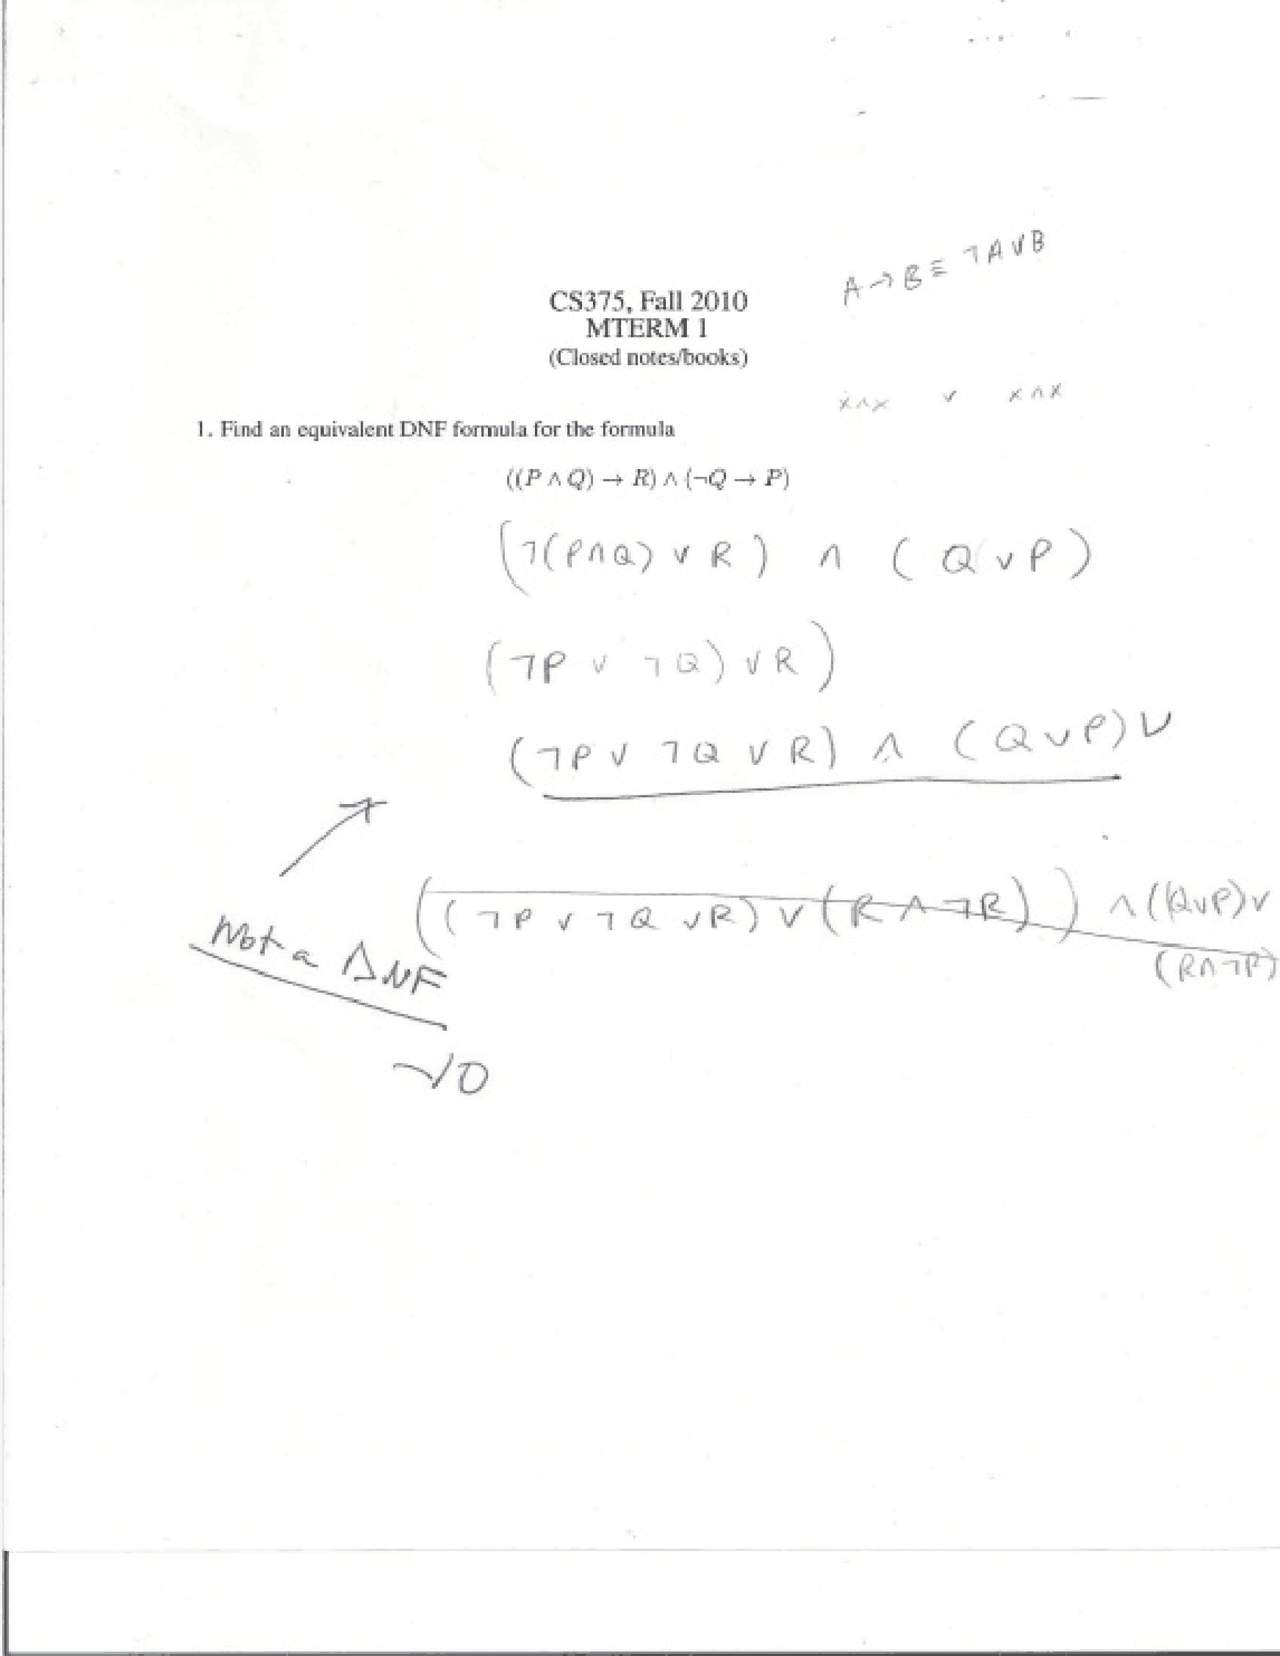 A → B ≡ ¬A ∨ B
CS375, Fall 2010
MTERM 1
(Closed notes/books)
x ∧ x ∨ x ∧ x
1. Find an equivalent DNF formula for the formula
((P ∧ Q) → R) ∧ (¬Q → P)
(¬(P ∧ Q) ∨ R) ∧ (Q ∨ P)
(¬P ∨ ¬Q) ∨ R)
(¬P ∨ ¬Q ∨ R) ∧ (Q ∨ P) ∨
((¬P ∨ ¬Q ∨ R) ∨ (R ∧ ¬R)) ∧ ((Q ∨ P) ∨
(R ∧ ¬P)
Not a DNF